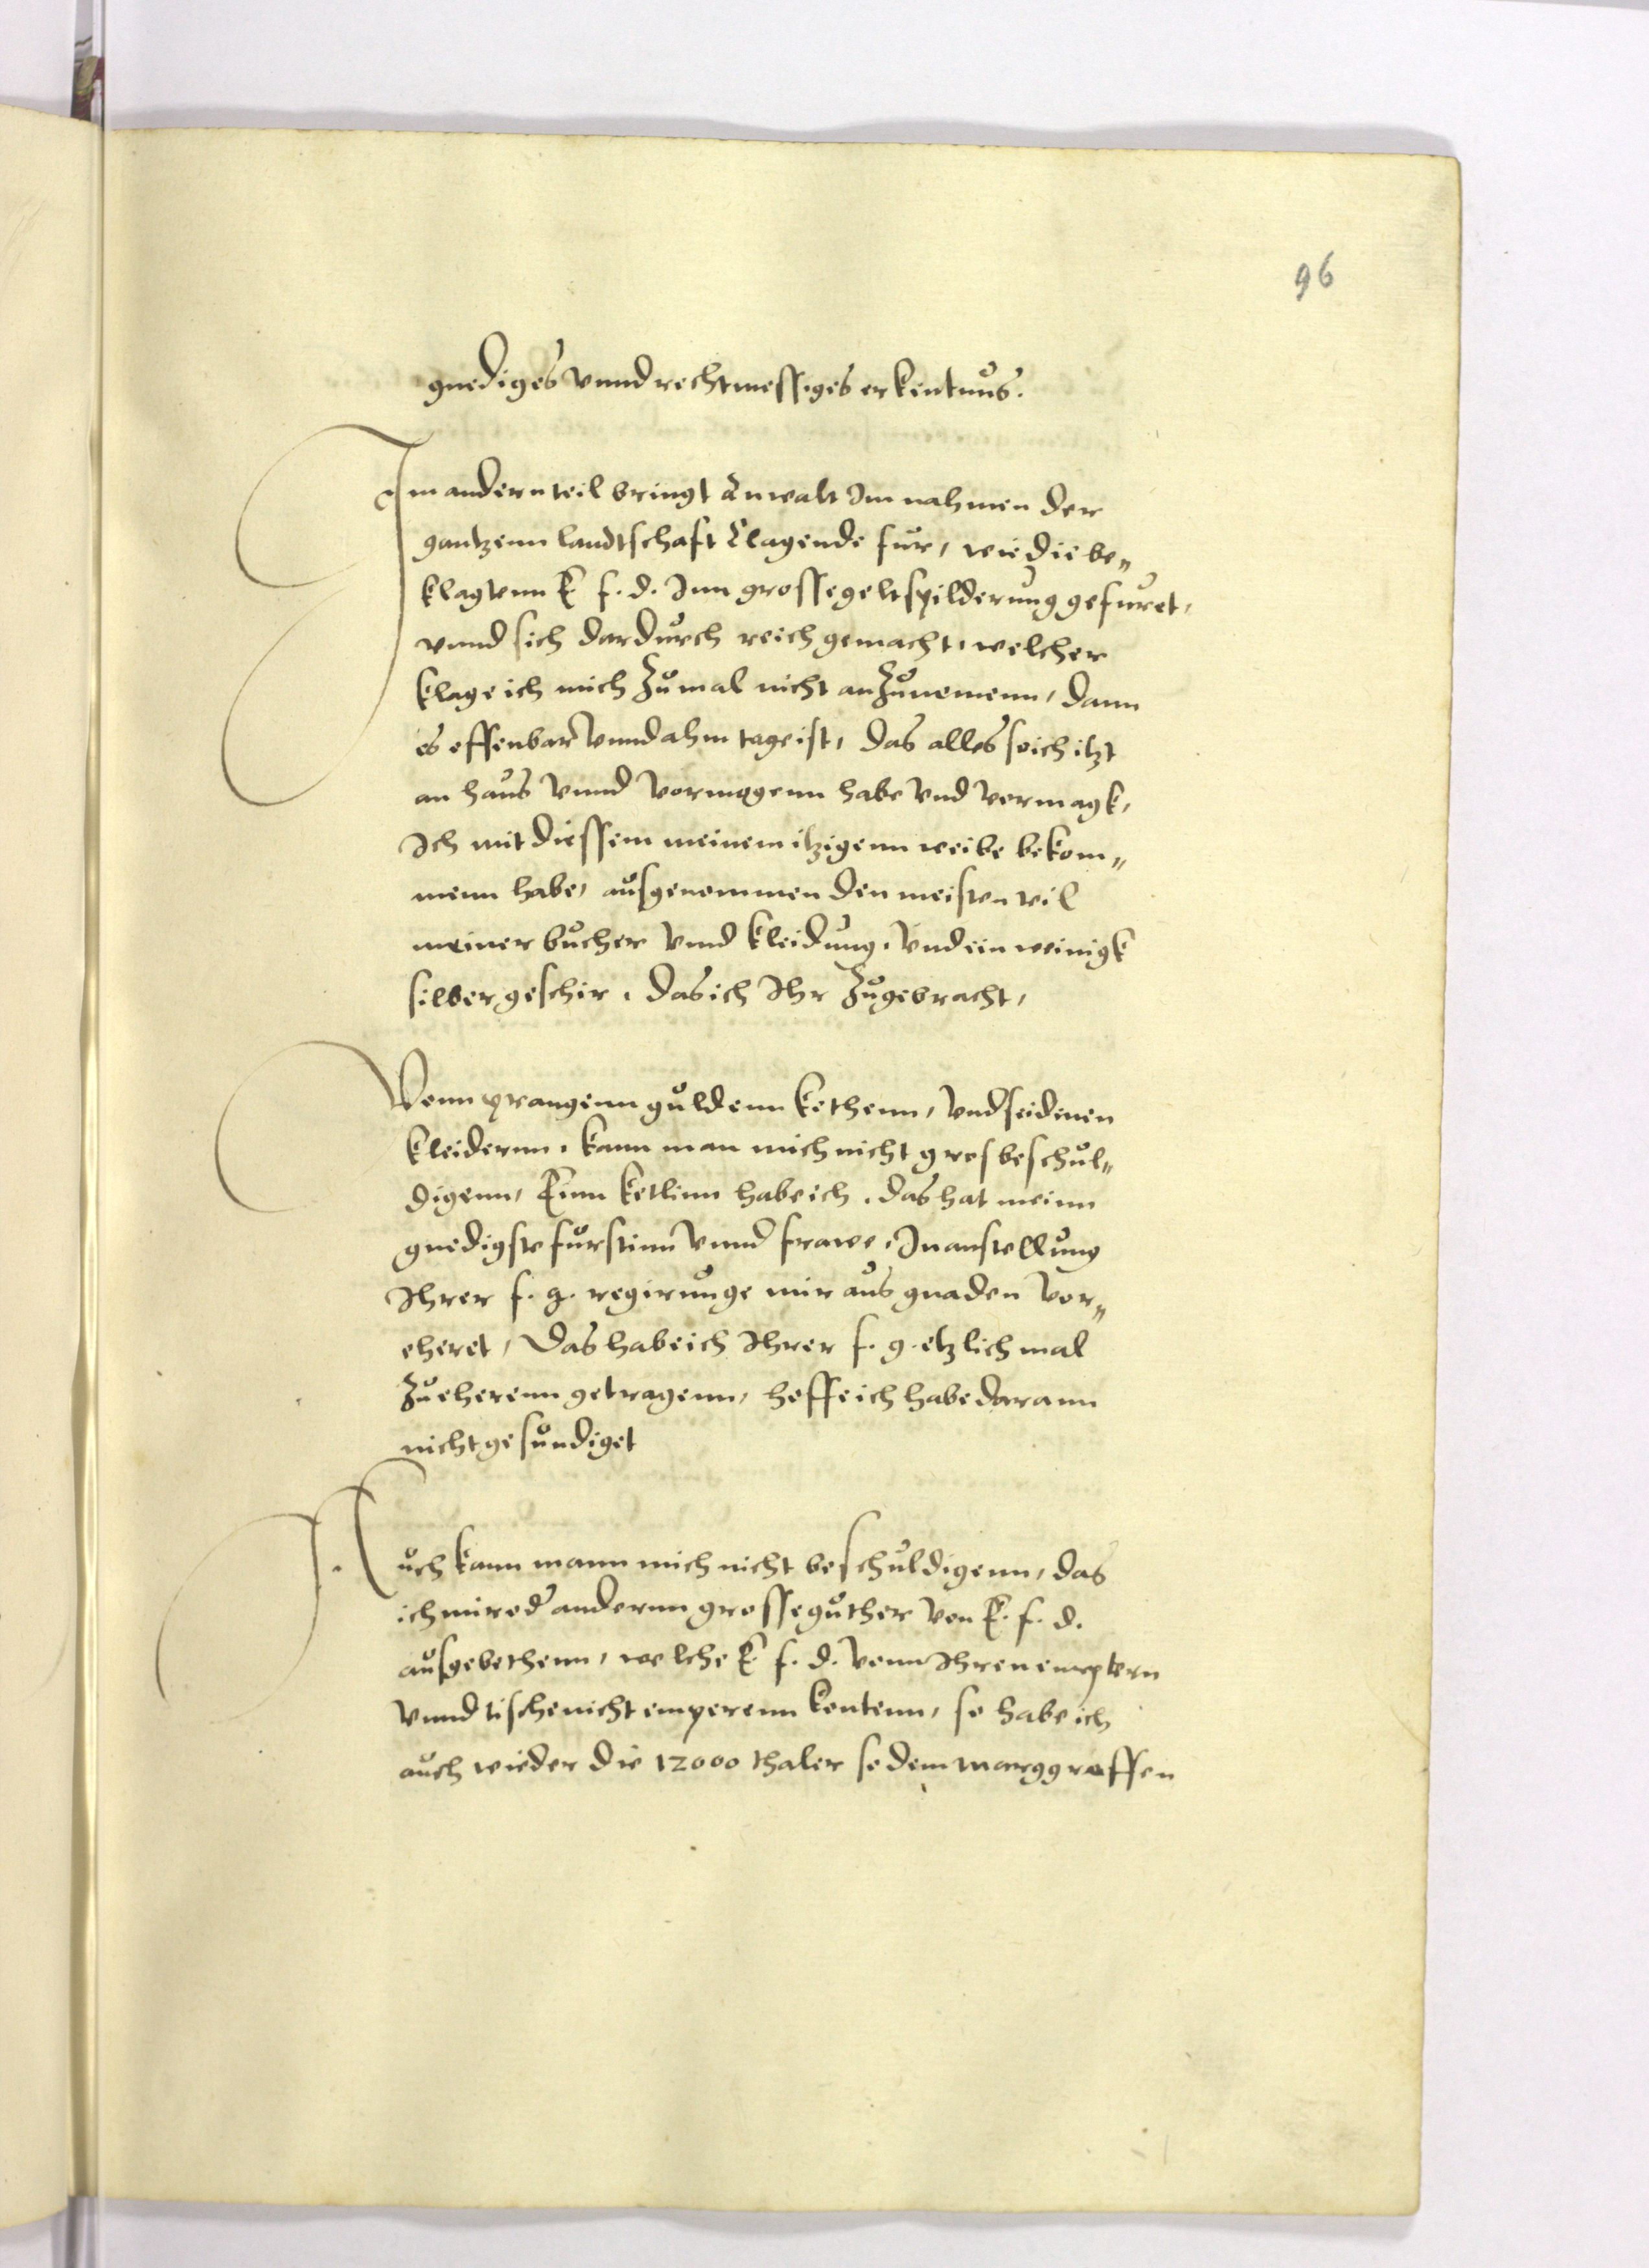 96
gnediges vnnd rechtmessiges erkentnus.
Im andern teil bringt Anwalt Im nahmen der
gantzenn landtschaft Clagende fur, wie die be„
klagtenn E f. d. Inn grosse geltspilderung gefuret,
vnnd sich dardurch reich gemacht, welcher
klage ich mich zumal nicht anzunemenn, dann
es offenbar vnnd ahm tage ist, das alles so ich itzt
an haus vnnd vormogenn habe vnd vermagk,
Ich mit diessem meinem itzigenn weibe bekom„
menn habe, ausgenommen den meisten teil
meiner bucher vnnd kleidung, vnd ein weinigk
silbergeschir, das ich Ihr zugebracht,
Vonn prangenn guldenn kethenn, vnd seidenen
kleidernn, kann man mich nicht gros beschul„
digenn, Einn ketlinn habe ich, das hat meinn
gnedigste furstinn vnnd frawe, In anstellung
Ihrer f. g. regirunge mir aus gnaden vor„
eheret, Das habe ich Ihrer f. g. etzlich mal
zu eherenn getragenn, hoffe ich habe darann
nicht gesundiget
Auch kann mann mich nicht beschuldigenn, das
ich mir od andernn grosse guther von E. f. d.
ausgebethenn, welche E f. d. vonn Ihren emptern
vnnd tische nicht emperenn kontenn, so habe ich
auch wieder die 12000 thaler so dem marggraffen